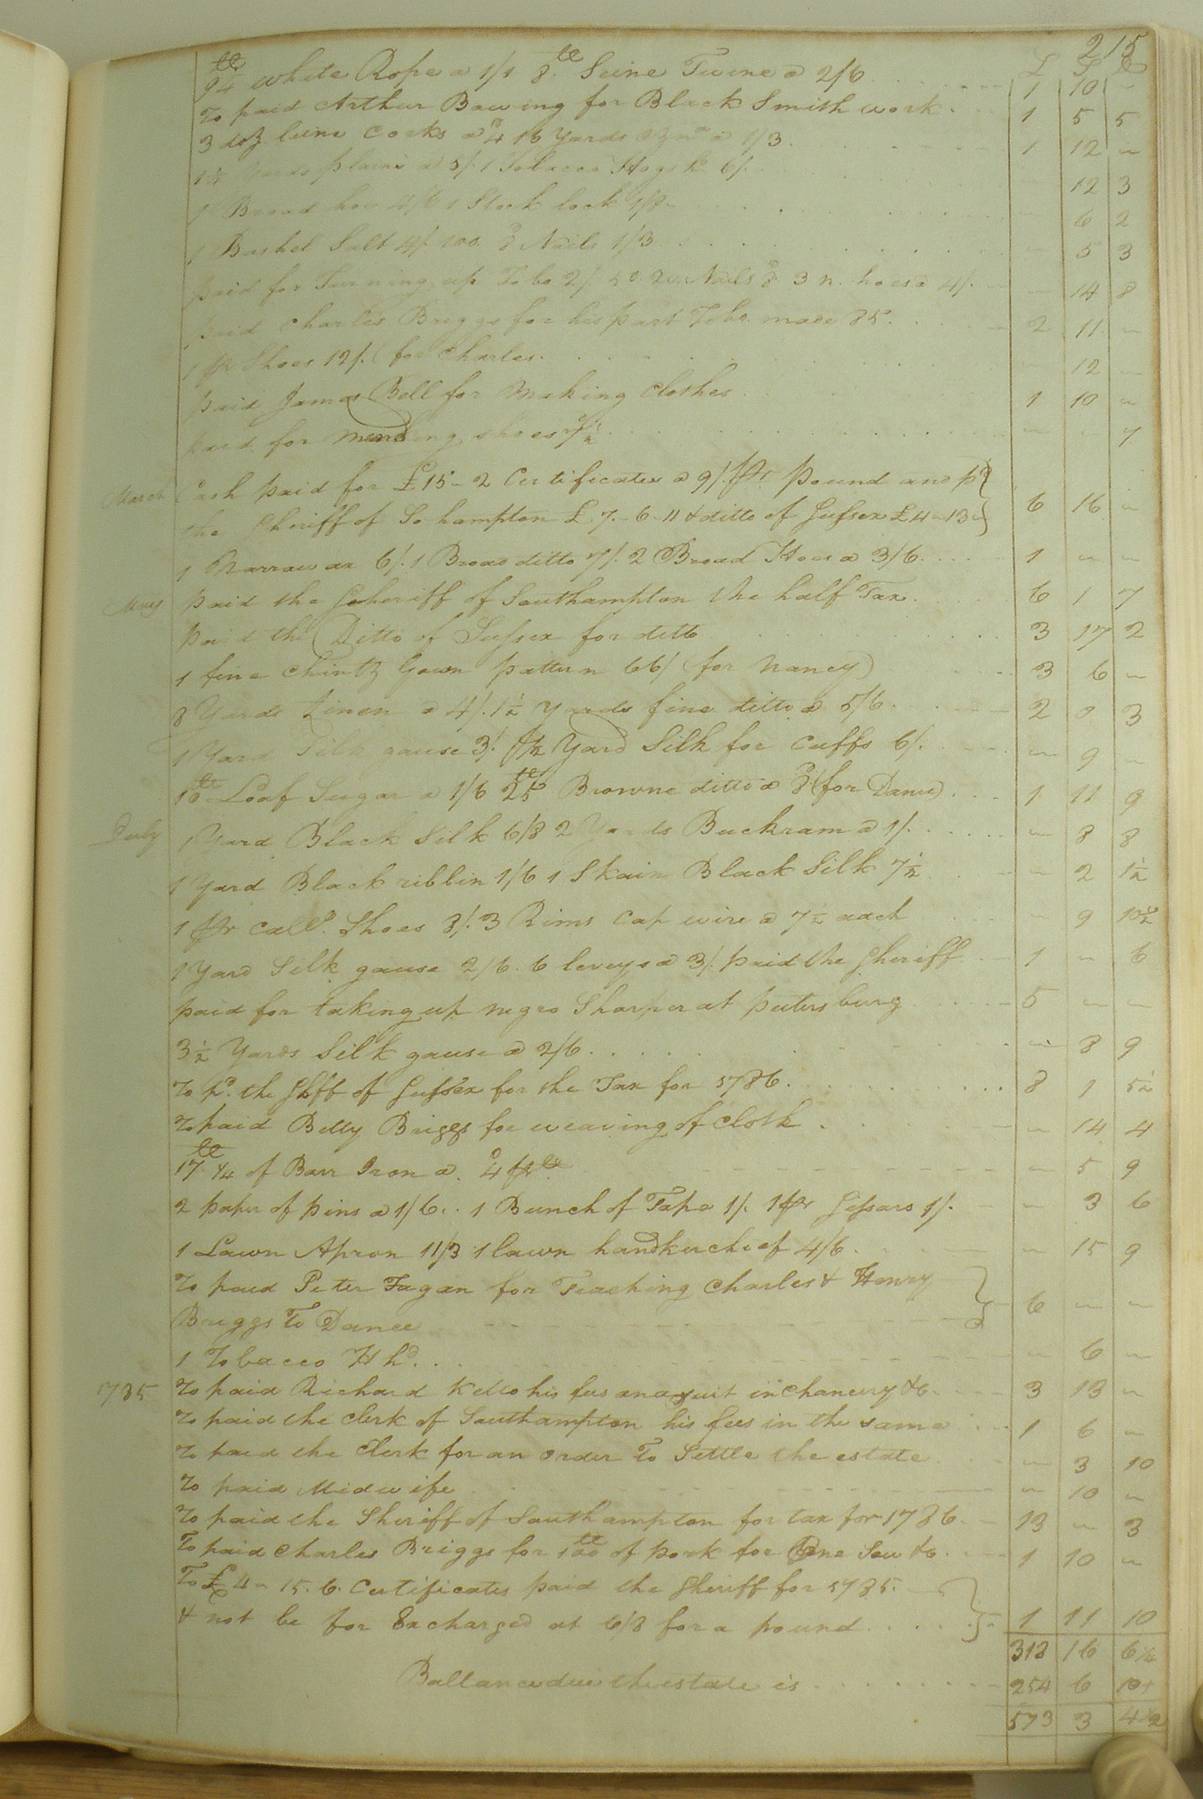 215
£ S D
9¼ lb white Rope a 1/1 8 lb Seine Twine a 2/6 1 10 -
To paid Arthur Bowing for Black Smith work 1 5 5
3 doz Corks a 4 18 Yards a 1/3 1 12 -
Yards plains a 5/. 1 Tobacco Hogsh 6/. - 12 3
1 Broad hoe 1 Stock lock - 6 2
1 Bushel Salt 4/. 100 8d Nails 1/3 - 5 3
paid for Turning up Tobo 2/. Nails 3 n. hoes a 4/. - 14 8
paid Charles Briggs for his part Tobo. made 85. 2 11 -
1 pr Shoes 12/. (for Charles - 12 -
paid James Bell for Making Clothes 1 10 -
paid for mending shoes - 7
March Cash paid for £15 - 2 Certificates a 9/. pr pound and pd
the Sheriff of So hampton £ 7 - 6 - 11 & ditto of Sussex £ 4 - 13 - 6 16 -
1 Narrow ax 6/. 1 Broad ditto 7/. 2 Broad Hoes a 3/6 1 - -
May paid the Sheriff of Southampton the half Tax 6 1 7
paid the Ditto of Sussex for ditto 3 17 2
1 fine Chintz Gown pattern 66/ (for Nancy) 3 6 -
8 Yards Linen a 4/. 1½ yards fine ditto a 5/6 2 0 3
1 Yard Silk gause 3/. ½ Yard Silk for Cuffs 6/. - 9 -
lb Loaf Sugar a 1/6 25 lb Browne ditto a 8 (for Dance) 1 11 9
July 1 Yard Black Silk 6/8 2 Yards Buckram a 1/. - 8 8
1 Yard Black ribbin 1/6 1 Skain Black Silk 7½ - 2 1½
1 pr Call. Shoes 8/. 3 Rims Cap wire a 7½ each - 9 10½
1 Yard Silk gause 2/6. 6 leveys a 3/. paid the Sheriff 1 - 6
paid for taking up negro Sharper at peetersburg 5 - -
3½ Yards Silk gause a 2/6 - 8 9
To pd. the Shff of Sussex for the Tax for 1786. 8 1 5½
To paid Betty Briggs for weaving of Cloth - 14 4
17 lb ¼ of Barr Iron a 4d pr lb - 5 9
2 paper of pins a 1/6. 1 Bunch of Tape 1/. 1 pr Sessars 1/. - 3 6
1 Lawn Apron 11/3 1 lawn handkerchief 4/6 - 15 9
To paid Peter Fagan for Teaching Charles & Henry
Briggs To Dance 6 - -
1 Tobacco Hhd. - 6 -
1785 To paid Richard Kello his fees on a suit in Chancery &c 3 13 -
To paid the Clerk of Southampton his fees in the same 1 6 -
To paid the Clerk for an order To Settle the estate - 3 10
To paid Midwife - 10 -
To paid the Sheriff of Southampton for tax for 1786 13 - 3
To paid Charles Briggs for 100 lb of pork for One Sow &c 1 10 -
To £ 4 - 15. 6. Certificates paid the Sheriff for 1785.
& not be for Excharged at 6/8 for a pound 1 11 10
318 16 6½
Ballance due the estate is 254 6 10
573 3 4½